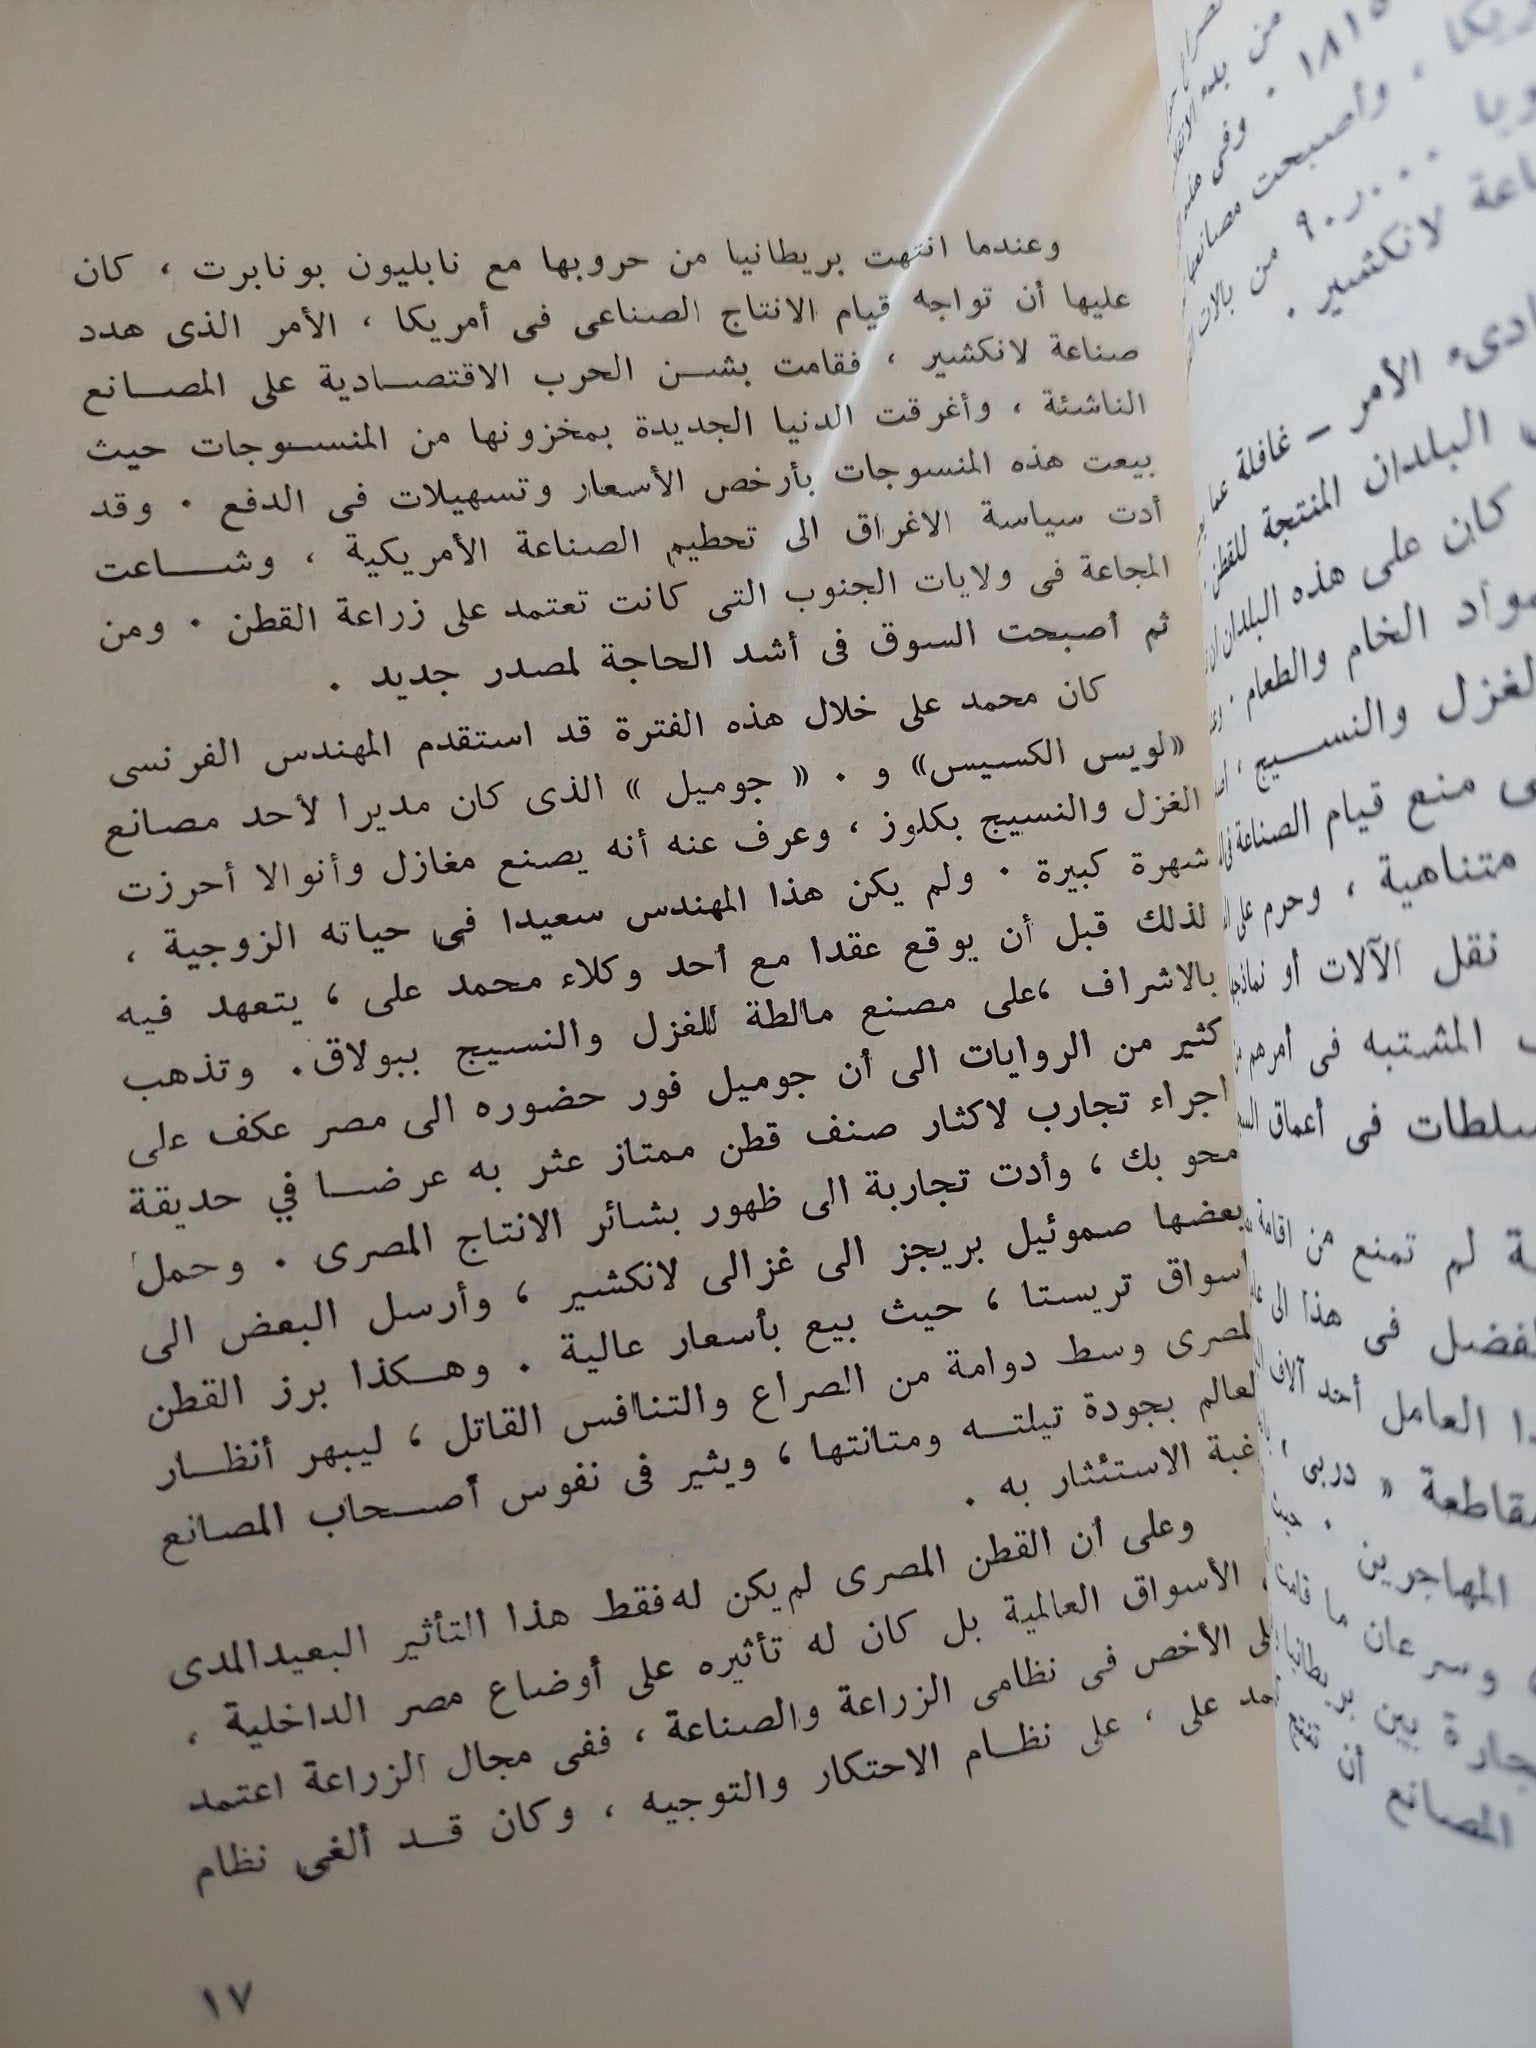 وعندما انتهت بريطانيا من حروبها مع نابليون بونابرت ، كان
عليها أن تواجه قيام الانتاج الصناعى فى أمريكا ، الأمر الذى هدد
صناعة لانكشير ، فقامت بشن الحرب الاقتصادية على المصانع
الناشئة ، وأغرقت الدنيا الجديدة بمخزونها من المنسوجات حيث
بيعت هذه المنسوجات بأرخص الأسعار وتسهيلات فى الدفع . وقد
أدت سياسة الاغراق الى تحطيم الصناعة الأمريكية ، وشاعت
المجاعة فى ولايات الجنوب التى كانت تعتمد على زراعة القطن . ومن
ثم أصبحت السوق فى أشد الحاجة لمصدر جديد .
كان محمد على خلال هذه الفترة قد استقدم المهندس الفرنسى
«لويس الكسيس» و . « جوميل » الذى كان مديرا لأحد مصانع
الغزل والنسيج بكلوز ، وعرف عنه أنه يصنع مغازل وأنوالا أحرزت
شهرة كبيرة . ولم يكن هذا المهندس سعيدا فى حياته الزوجية ،
لذلك قبل أن يوقع عقدا مع أحد وكلاء محمد على ، يتعهد فيه
بالاشراف ،على مصنع مالطة للغزل والنسيج ببولاق. وتذهب
كثير من الروايات الى أن جوميل فور حضوره الى مصر عكف على
اجراء تجارب لاكثار صنف قطن ممتاز عثر به عرضا في حديقة
محو بك ، وأدت تجاربة الى ظهور بشائر الانتاج المصرى . وحمل
بعضها صموئيل بريجز الى غزالى لانكشير ، وأرسل البعض الى
أسواق تريستا ، حيث بيع بأسعار عالية . وهكذا برز القطن
المصرى وسط دوامة من الصراع والتنافس القاتل ، ليبهر أنظار
العالم بجودة تيلته ومتانتها ، ويثير فى نفوس أصحاب المصانع
رغبة الاستئثار به .
وعلى أن القطن المصرى لم يكن له فقط هذا التأثير البعيد المدى
الأسواق العالمية بل كان له تأثيره على أوضاع مصر الداخلية ،
الأخص فى نظامى الزراعة والصناعة ، ففى مجال الزراعة اعتمد
على ، على نظام الاحتكار والتوجيه ، وكان قد ألغى نظام
١٧
١٨١٥ . وفى
، وأصبحت
من بالات
لانكشير .
الأمر — غافلة عما
البلدان المنتجة للقطن
كان على هذه البلدان
الخام والطعام .
والنسيج ،
منع قيام الصناعة
متناهية ، وحرم على
نقل الآلات أو
المشتبه فى أمرهم
فى أعماق
لم تمنع من اقامة
فى هذا الى
العامل أحد آلاف
« دربى
المهاجرين . حيث
وسرعان ما قامت
بين بريطانيا
المصانع أن